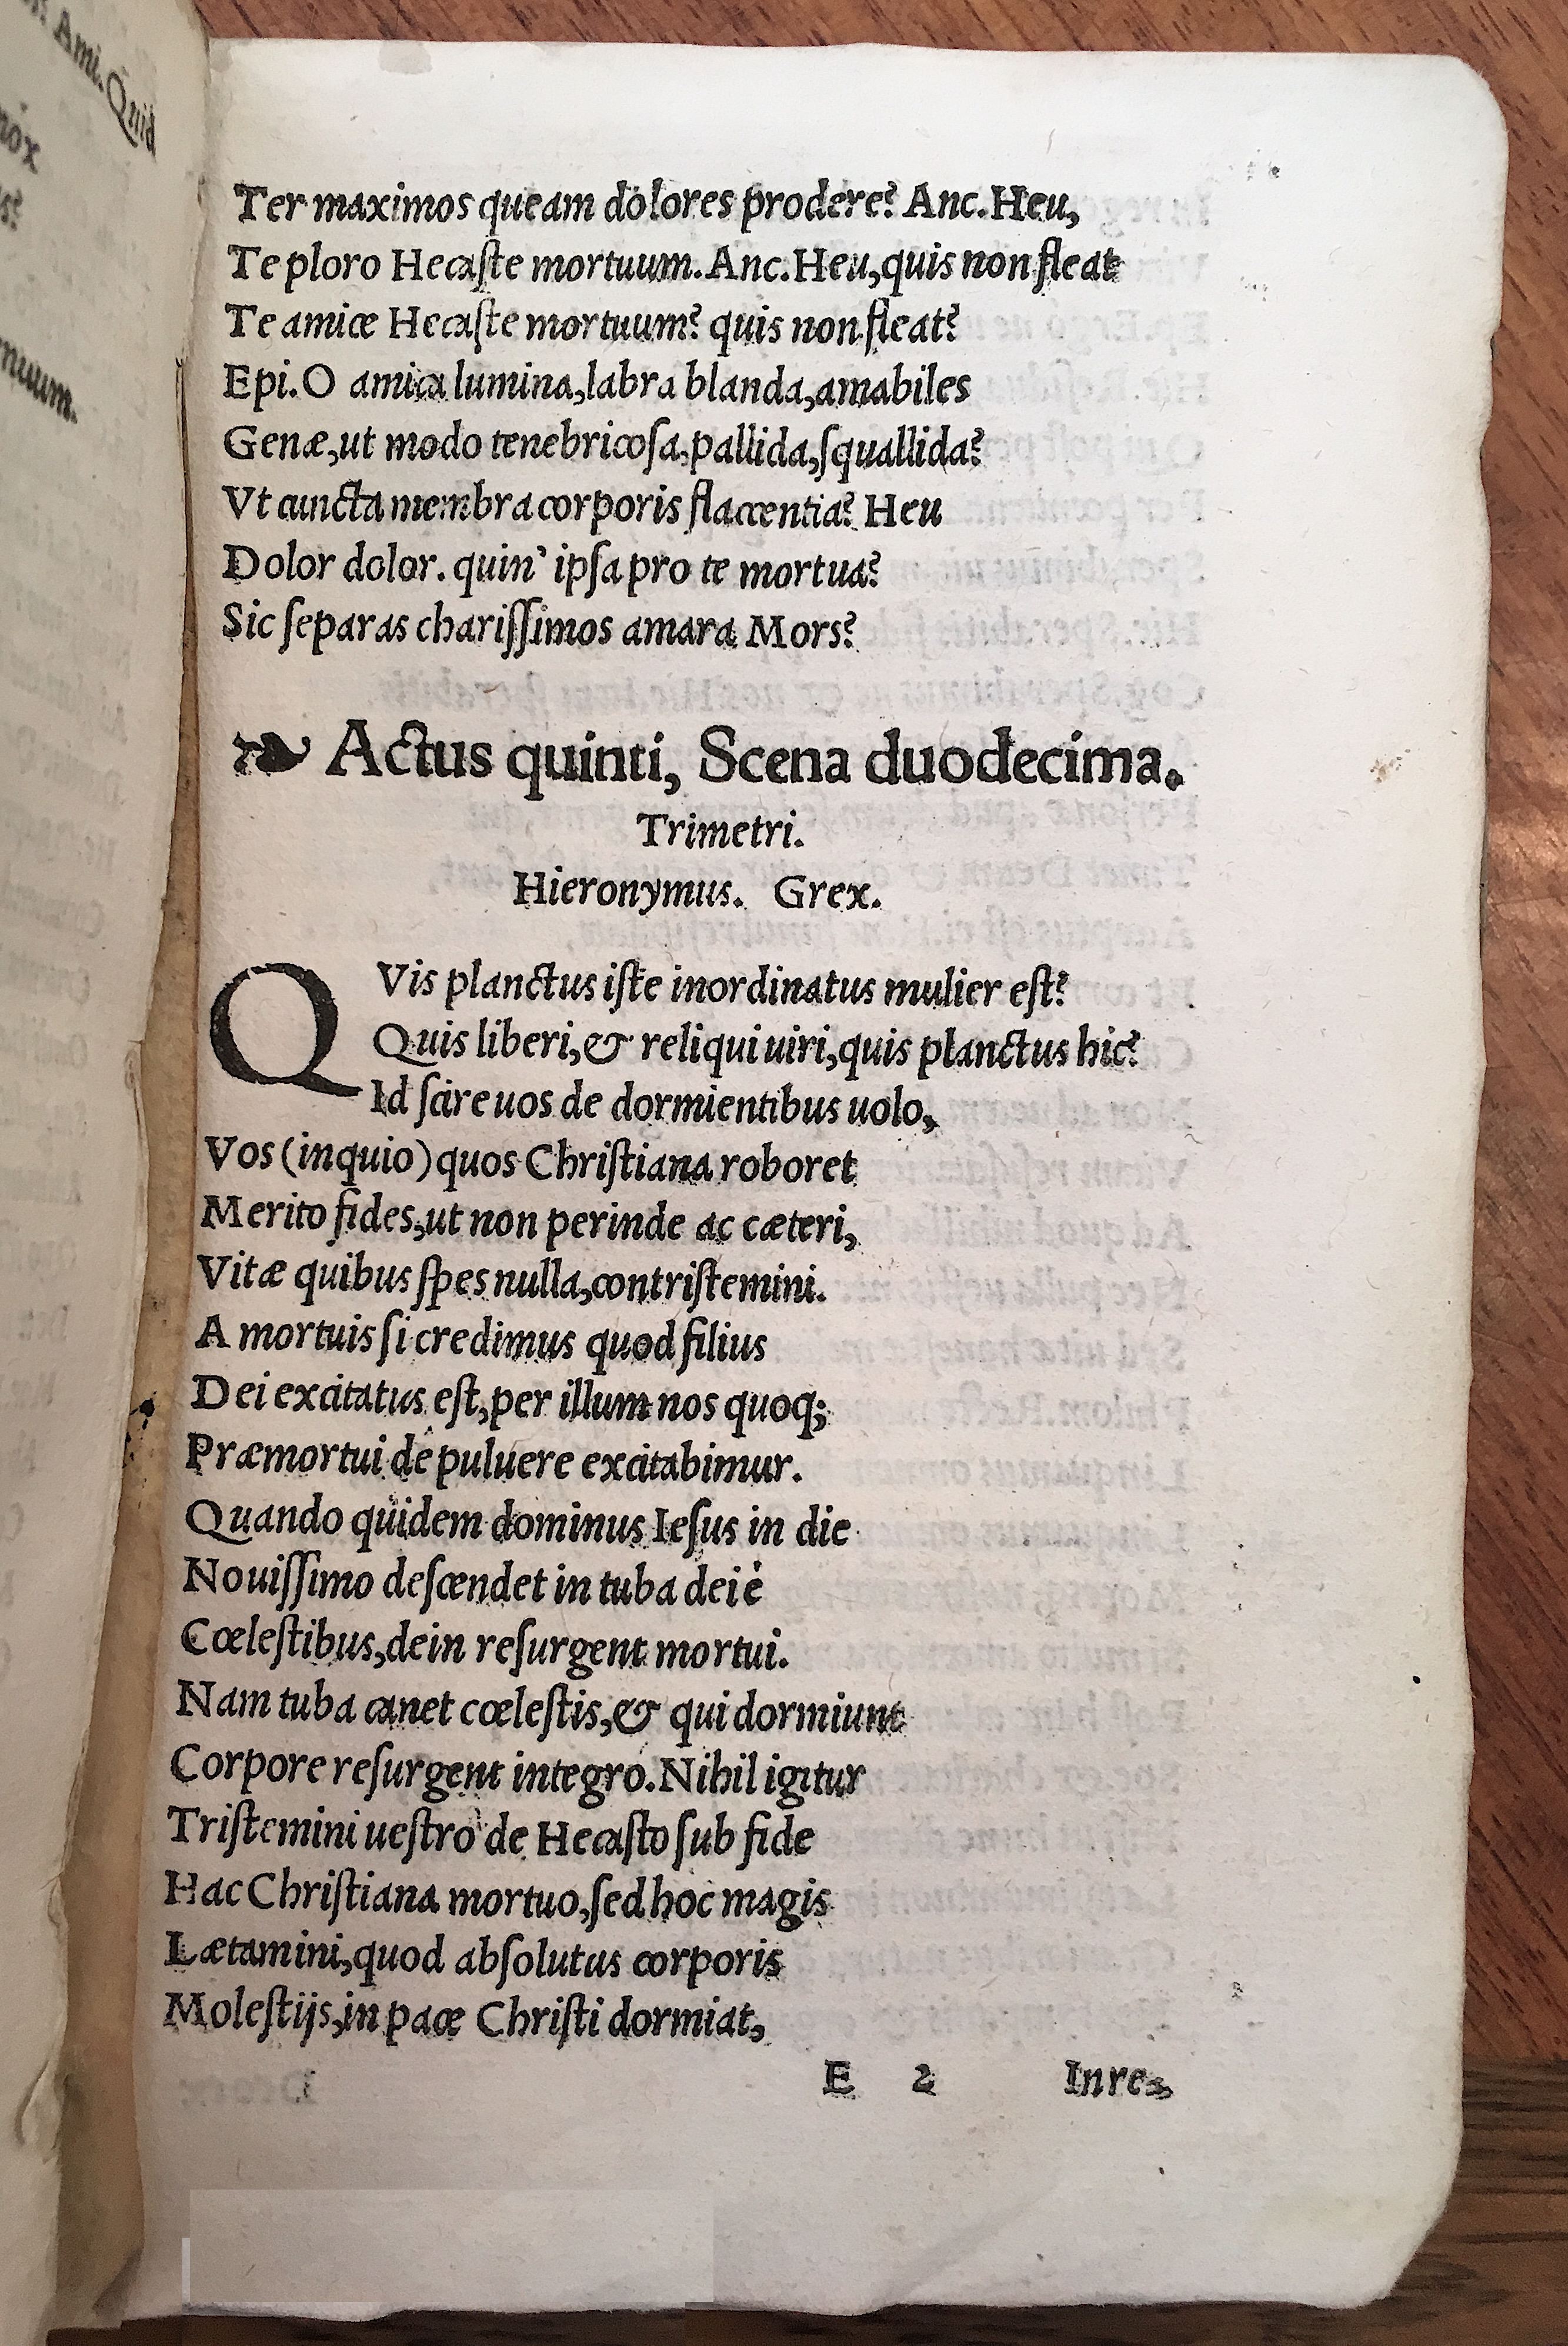 Ami. Quid
nox
nuum.
Ter maximos queam dolores prodere? Anc. Heu,
Te ploro Hecaſte mortuum. Anc. Heu, quis non fleat
Te amice Hecaſte mortuum? quis non fleat?
Epi. O amica lumina, labra blanda, amabiles
Genæ, ut modo tenebricoſa, pallida, ſquallida?
Vt cuncta membra corporis flaccentia? Heu
Dolor dolor. quin' ipſa pro te mortua?
Sic ſeparas chariſſimos amara Mors?
❧ Actus quinti, Scena duodecima.
Trimetri.
Hieronymus. Grex.
QVis planctus iſte inordinatus mulier eſt?
Quis liberi, & reliqui uiri, quis planctus hic?
Id ſcire uos de dormientibus uolo,
Vos (inquio) quos Chriſtiana roboret
Merito fides, ut non perinde ac cæteri,
Vitæ quibus ſpes nulla, contriſtemini.
A mortuis ſi credimus quod filius
Dei excitatus eſt, per illum nos quoq;
Præmortui de puluere excitabimur.
Quando quidem dominus Ieſus in die
Nouiſſimo deſcendet in tuba dei è
Cœleſtibus, dein reſurgent mortui.
Nam tuba canet cœleſtis, & qui dormiunt
Corpore reſurgent integro. Nihil igitur
Triſtemini ueſtro de Hecaſto ſub fide
Hac Chriſtiana mortuo, ſed hoc magis
Lætamini, quod abſolutus corporis
Moleſtijs, in pace Chriſti dormiat,
E 2 Inre,